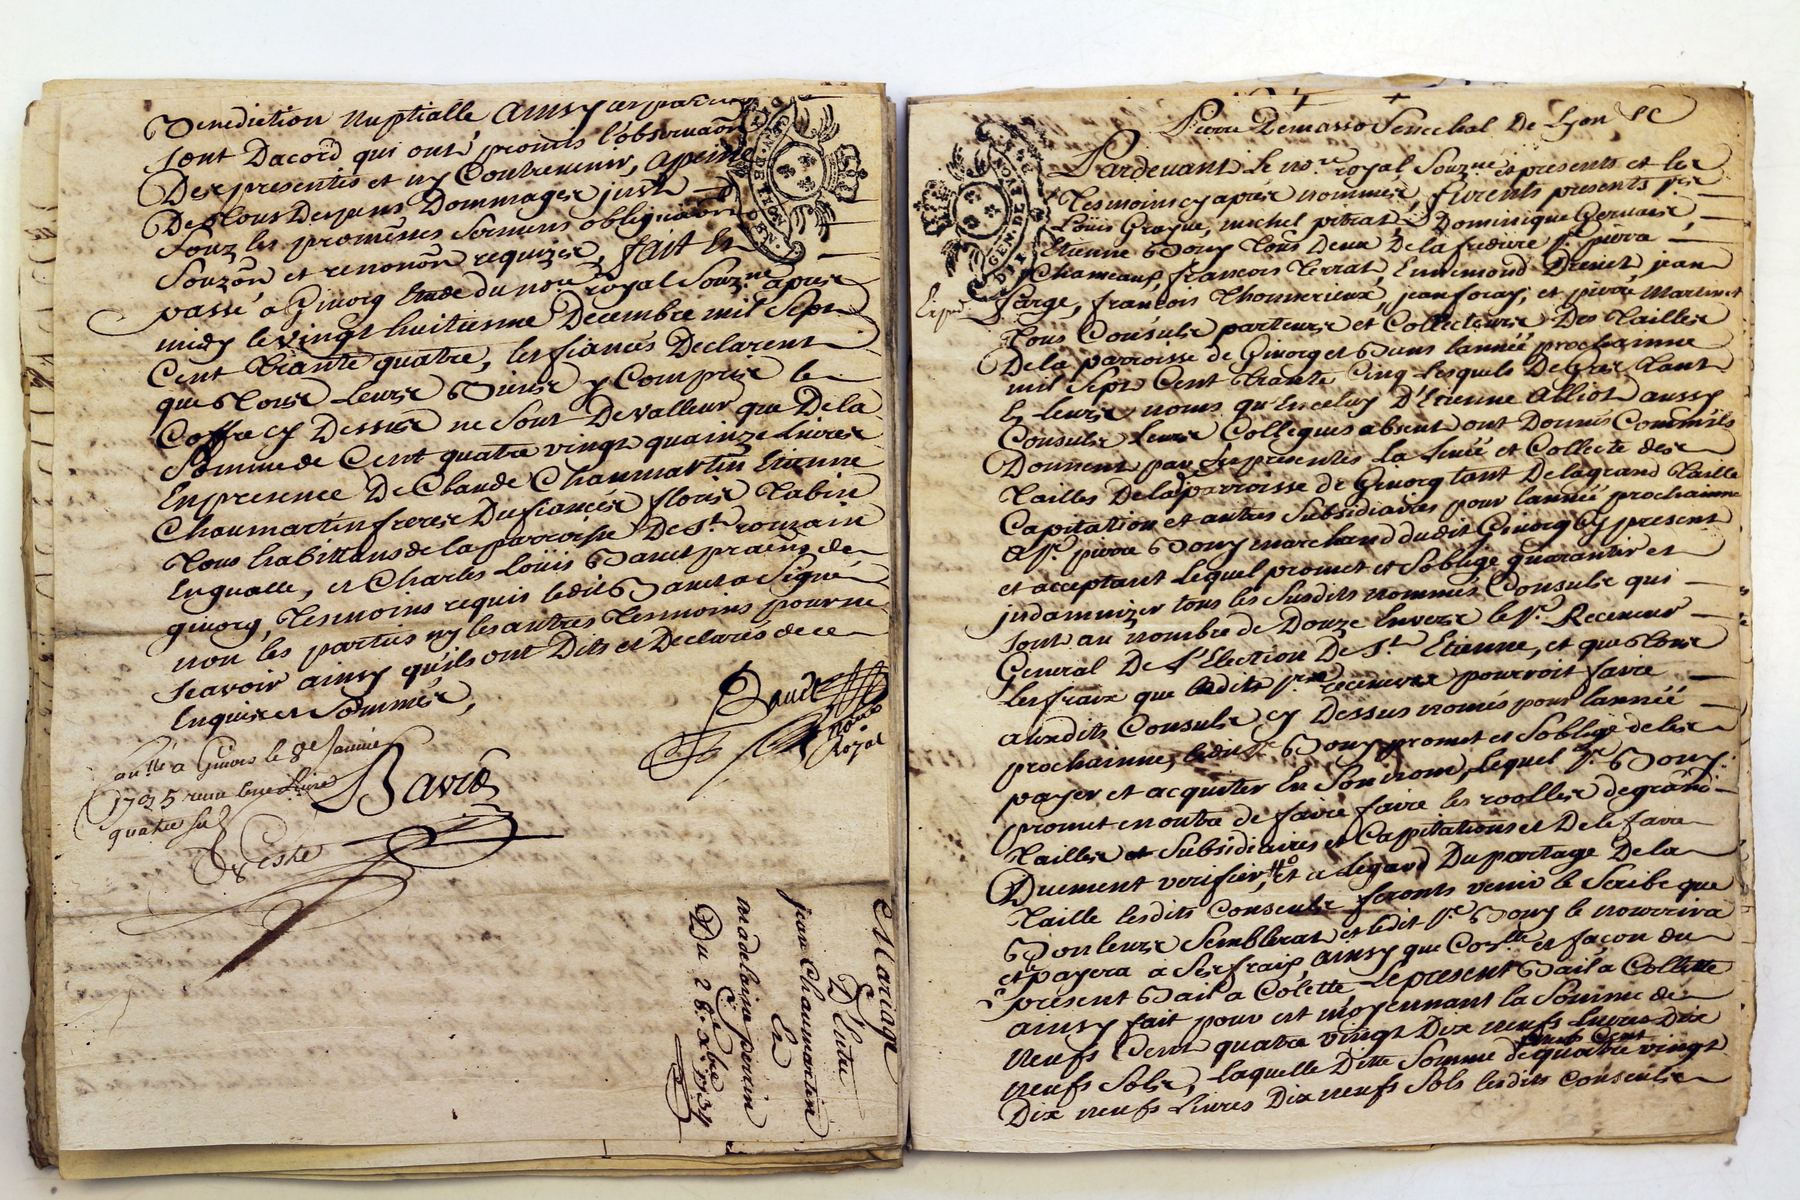 Benediction Nuptialle Ainsy les parties
sont Dacord qui ont promis l'observaon
Des presentes et ny Contrevenir, apeine
De Tous Despens Dommages
souz les promesses sermens obligaon
souzon et renonon requizes, fait et
passé a Givorg Etude du nore royal Souzne apres
midy le vingt huitieme Decembre mil Sept
Cent Trante quatre, les fiancés Declarent
que Tous Leurs Biens y Compris le
Coffre cy Dessus ne sont De valleur que De la
Somme de Cent quatre vingt quainze Livres
En presence De Claude Chaumartin Etienne
Chaumartin freres Du fiancé floris Tabin
Tous habittans de la parroisse De St romain
En , et Charles Loüis de
givorg, Tesmoins requis ledit a Signé
non les parties ny les autres Tesmoins pour ne
scavoir ainsy quils ont Dits et Declarés de ce
Enquis et Sommés,
nore
royal
a Givors le 8e Janvier
1735 receu
quatre sols
Mariage
D'Entre
jean Chaumartin
Et
madelaine perrin
Du 28e Xbre 1734
Pierre Demasso Senechal De Lyon &c
Pardevant Le nore royal Souzne et presents et les
Tesmoins cy apres nommés, furents presents
Loüis , michel pitrat, Dominique Gervais,
Etienne Bony Tous Deux De la , Sr pierre
Chameaux, francois Terrat, Ennemond , jean
farge, francois Thomerieux, jean foray, et pierre Martinet
Tous Consuls parteurs et Collecteurs Des Tailles
De la parroisse de Givorg et Bans lannée prochainne
mil Sept Cent Trante Cinq Lesquels De Gré Tant
En Leurs noms qu'En celuy D'Etienne Alliot aussy
Consuls Leurs Collegues absent ont Donné Comm'ils
Donnent par les presentes La Levée et Collecte des
Tailles De la parroisse de Givorg tant De la grand Taille
Capitation et autres Subsidiaires pour lannée prochainne
a Sr pierre Bony marchand dudit Givorg Cy present
et acceptant Lequel promet et Soblige guarantir et
jndamnizer tous les Susdits nommés Consuls qui
sont au nombre de Douze Envers le Sr Receveur
General De l'Election De St Etienne, et que Tous
les fraix que ledits receveur pourroit faire
auxdits Consuls cy Dessus només pour lannée
prochainne, ledit Sr Bony promet et Soblige de les
payer et acquiter En Son nom, Lequel Sr Bony
promet en outre de faire faire les roolles de grand
Tailles et Subsidiaires et Capitations et De le faire
Duement verifier, et a legard Du partage De la
Taille lesdits Consuls feronts venir le Scribe que
Bon leurs Semblerat et ledit Sr Bony le nourrira
et payera a Ses fraix, ainsy que et façon du
present Bail a Colette Le present Bail a Collette
ainsy fait pour et moyennant la Somme de
neufs Cent quatre vingt Dix neufs Livres Dix
neufs Sols, Laquelle Ditte Somme de neufs Cent quatre vingt
Dix neufs Livres Dix neufs Sols lesdits Consuls